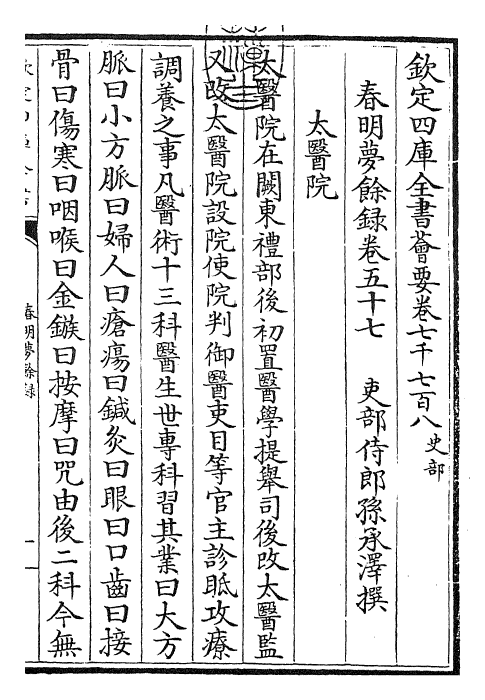 欽定四庫全書薈要卷七千七百八 史部
春明夢餘録卷五十七 吏部侍郎孫承澤撰
太醫院
太醫院在闕東禮部後初置醫學提舉司後改太醫監
又改太醫院設院使院判御醫吏目等官主診眂攻療
調養之事凡醫術十三科醫生世專科習其業曰大方
脈曰小方脈曰婦人曰瘡瘍曰鍼灸曰眼曰口齒曰接
骨曰傷寒曰咽喉曰金鏃曰按摩曰咒由後二科今無
春明夢餘録
一